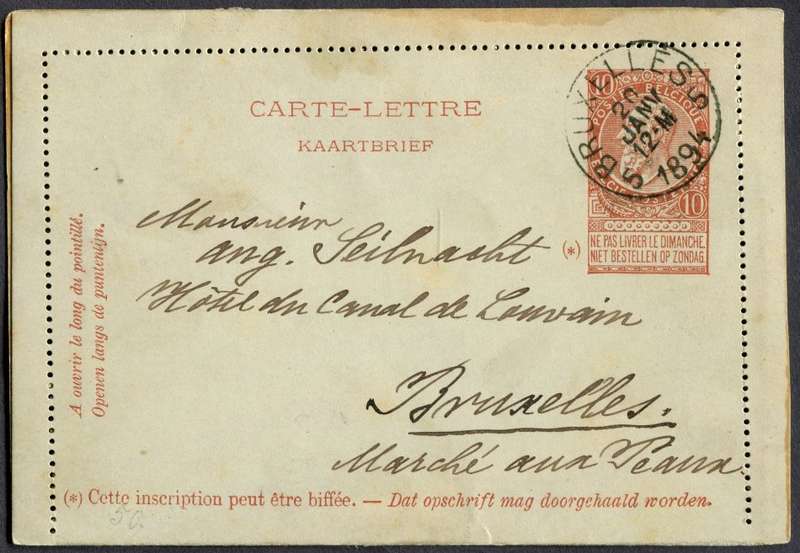 CARTE-LETTRE
KAARTBRIEF
BRUXELLES 5
20
JANV
12-M
1894
5
10
10
POSTES BELGIQUE
NE PAS LIVRER LE DIMANCHE.
NIET BESTELLEN OP ZONDAG.
(*)
A ouvrir le long du pointillé.
Openen langs de puntenlijn.
Monsieur
Aug. Seilnacht
Hôtel du Canal de Louvain
Bruxelles.
Marché aux Peaux
(*) Cette inscription peut être biffée. — Dat opschrift mag doorgehaald worden.